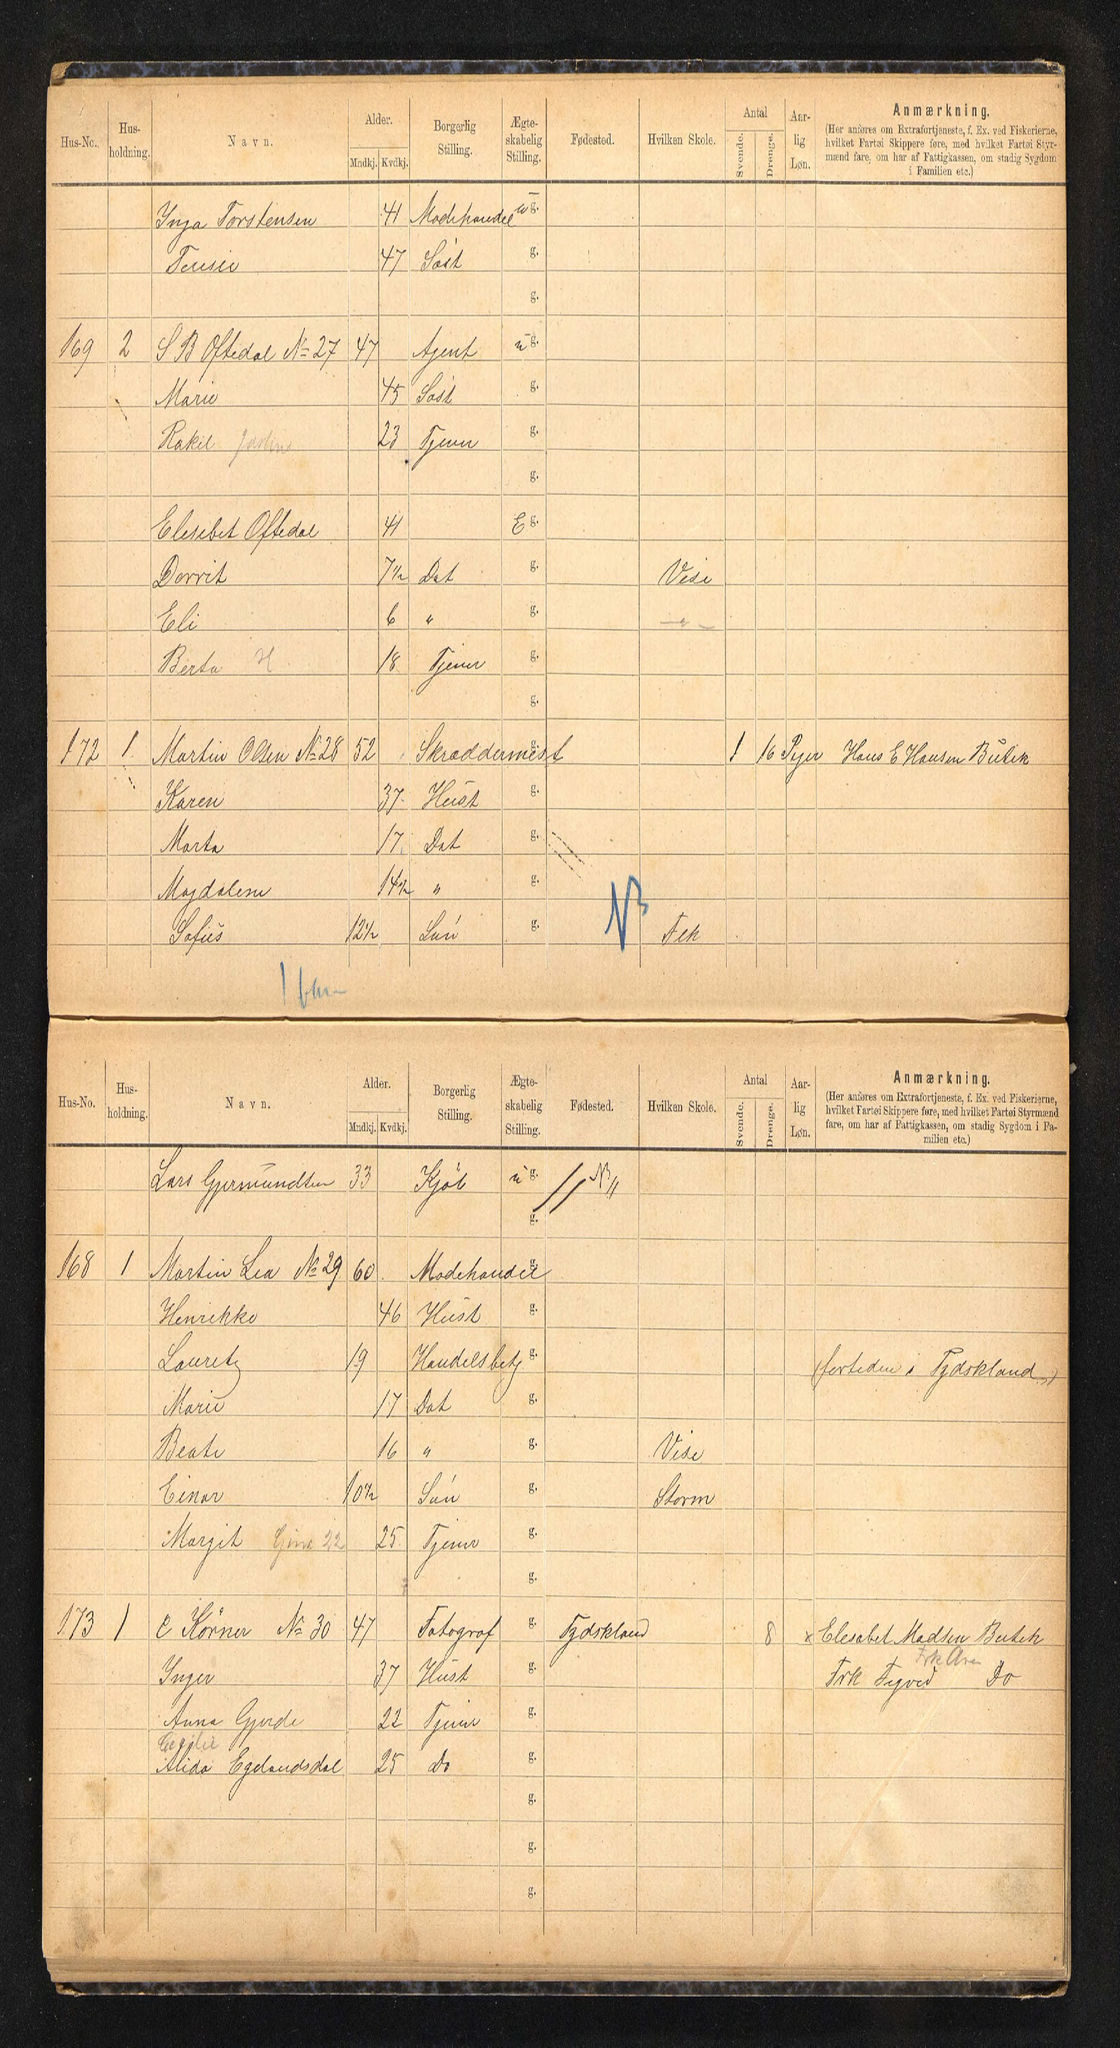 Hus-No. Hus-holdning. Navn. Alder. Mndkj. Kvdkj. Borgerlig Stilling. Ægte-skabelig Stilling. Fødested. Hvilken Skole. Antal Svende. Drenge. Aar-lig Løn. Anmærkning.
(Her anføres om Extrafortjeneste, f. Ex. ved Fiskerierne, hvilket Fartøi Skippere føre, med hvilket Fartøi Styrmænd fare, om har af Fattigkassen, om stadig Sygdom i Familien etc.)
Inga Torstensen 41 Modehandel u g.
47 Søst g.
g.
169 2 S B Oftedal No 27 47 Agent u g.
Marie 45 Søst g.
Rakel 23 Tjener g.
g.
Elesebet Oftedal 41 E g.
Dorrit 7½ Dat g. Vise
Eli 6 " g. - " -
Berta H 18 Tjener g.
g.
172 1 Martin Olsen No 28 52 Skræddermest 1 16 Hans E Hansen Butik
Karen 37 Hust g.
Marta 17 Dat g.
Magdalene 14½ " g.
Sofus 12½ Søn g. NB Flk
1
Hus-No. Hus-holdning. Navn. Alder. Mndkj. Kvdkj. Borgerlig Stilling. Ægte-skabelig Stilling. Fødested. Hvilken Skole. Antal Svende. Drenge. Aar-lig Løn. Anmærkning.
(Her anføres om Extrafortjeneste, f. Ex. ved Fiskerierne, hvilket Fartøi Skippere føre, med hvilket Fartøi Styrmænd fare, om har af Fattigkassen, om stadig Sygdom i Familien etc.)
Lars Gjermundsen 33 Kjøb u g. // NB //
g.
168 1 Martin Lea No 29 60 Modehandel g.
Henrikke 46 Hust g.
Lauretz 19 Handelsbetj g. (fortiden i Tydskland)
Marie 17 Dat g.
Beate 16 " g. Vise
Einar 10½ Søn g. Storm
Margit 22 25 Tjener g.
g.
173 1 C Körner No 30 47 Fotograf g. Tydskland 8 x Elesabet Madsen Butik
Inger 37 Hust g. Frk Do
Anna Gjerde 22 Tjener g.
Alida Egelandsdal 25 Do g.
g.
g.
g.